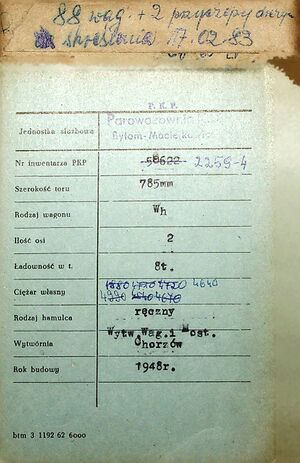 88 wag. + 2 przyczepy
skreślenia 17.02.83
P. K. P.
Jednostka służbowa Parowozownia
Bytom-Maciejkowice
Nr inwentarza PKP 58622 2259-4
Szerokość toru 785mm
Rodzaj wagonu Wh
Ilość osi 2
Ładowność w t. 8t.
Ciężar własny 4720 4640
4670
Rodzaj hamulca ręczny
Wytw. Wag. i Most.
Wytwórnia Chorzów
Rok budowy 1948r.
btm 3 1192 62 6000